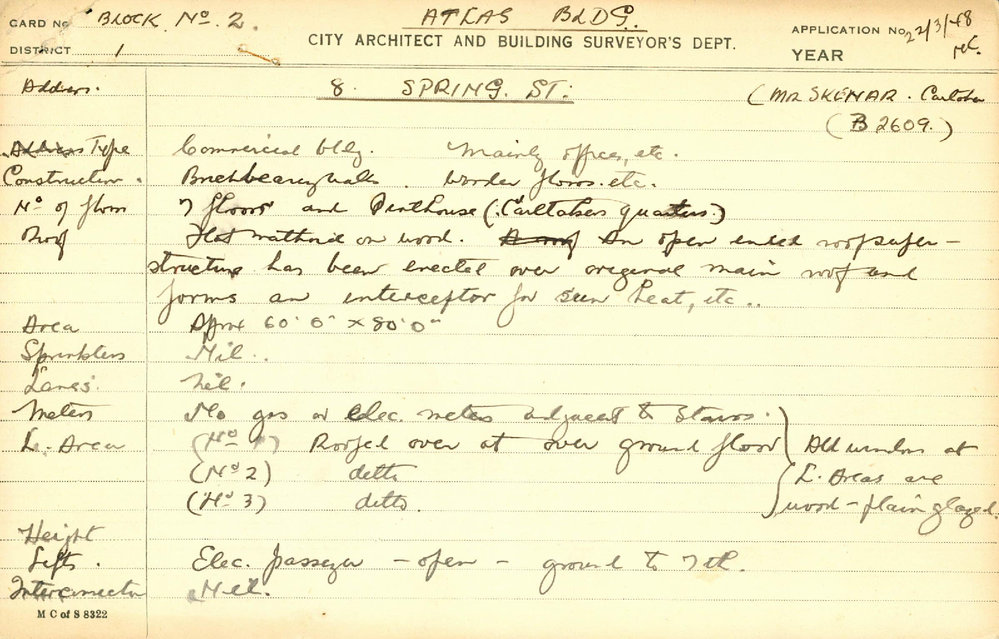 CARD No BLOCK No. 2. ATLAS BLDG. APPLICATION No. 22/3/48
DISTRICT 1 CITY ARCHITECT AND BUILDING SURVEYOR'S DEPT. YEAR
Address. 8. SPRING. ST. (MR SKENAR. Caretaker
(B 2609.)
Address Type Commercial bldg. Mainly offices, etc.
Construction. Brick bearing walls. Wooden floors. etc.
No of floors 7 floors and Penthouse (Caretakers quarters.)
Roof Flat on wood. A roof An open ended roof super-
structure has been erected over original main roof and
forms an interceptor for sun heat, etc..
Area Aprox 60'0" x 80'0"
Sprinklers Nil..
Lanes Nil.
Meters No gas or elec. meters adjacent to Stairs.
L. Area (No 1) Roofed over at over ground floor All windows at
(No 2) ditto L. Areas are
(No 3) ditto. wood - plain glazed.
Height
Lifts. Elec. passenger - open - ground to 7th.
Interconnector Nil.
M C of S 8322